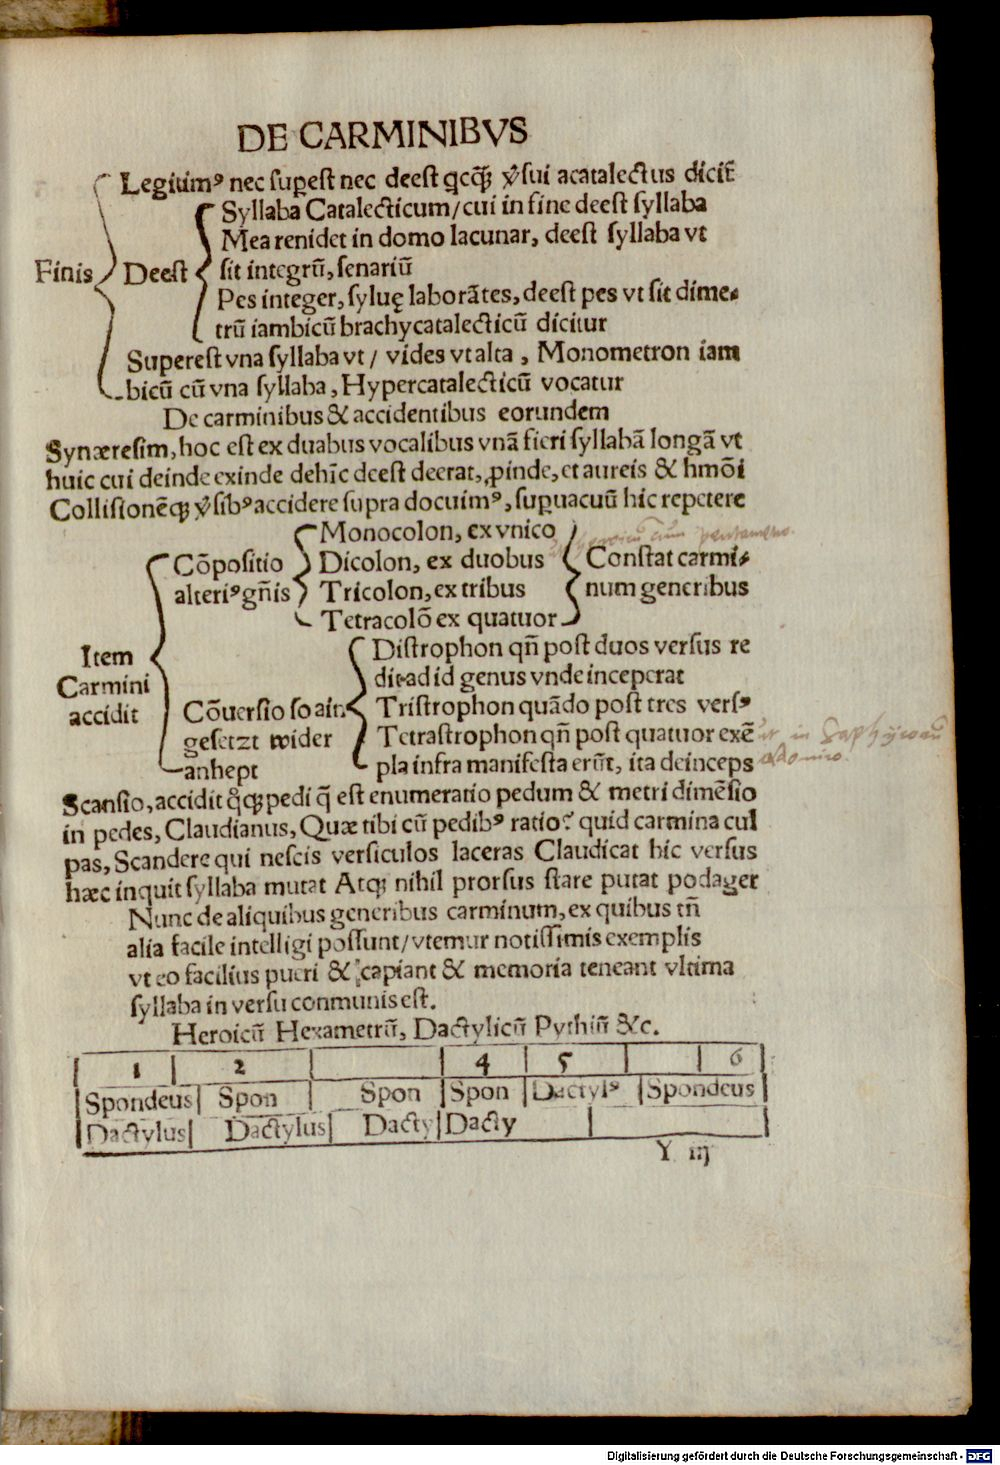 DE CARMINIBVS
Legitimꝰ nec suꝑest nec deest qcq̃ꝫ v̉sui acatalectus dicit̃
Syllaba Catalecticum/cui in fine deest syllaba
Mea renidet in domo lacunar, deest syllaba vt
Finis Deest sit integrũ, senariũ
Pes integer, syluę laborãtes, deest pes vt sit dime⸗
trũ iambicũ brachycatalecticũ dicitur
Superest vna syllaba vt / vides vt alta, Monometron iam
bicũ cũ vna syllaba, Hypercatalecticũ vocatur
De carminibus & accidentibus eorundem
Synæresim, hoc est ex duabus vocalibus vnã fieri syllabã longã vt
huic cui deinde exinde dehĩc deest deerat, ꝓinde, et aureis & hmõi
Collisionẽqꝫ v̉sibꝰ accidere supra docuimꝰ, suꝑuacuũ hic repetere
Monocolon, ex vnico
Cõpositio Dicolon, ex duobus Constat carmi⸗
alteriꝰ gñis Tricolon, ex tribus num generibus
Tetracolõ ex quatuor
Distrophon qñ post duos versus re
Item dit ad id genus vnde inceperat
Carmini
accidit Cõuersio so ain Tristrophon quãdo post tres versꝰ
gesetzt wider Tetrastrophon qñ post quatuor exẽ vt in Saphycorũ
anhept pla infra manifesta erũt, ita deinceps adonico
Scansio, accidit q̊qꝫ pedi q̃ est enumeratio pedum & metri dimẽsio
in pedes, Claudianus, Quæ tibi cũ pedibꝰ ratio? quid carmina cul
pas, Scandere qui nescis versiculos laceras Claudicat hic versus
hæc inquit syllaba mutat Atqꝫ nihil prorsus stare putat podager
Nunc de aliquibus generibus carminum, ex quibus tñ
alia facile intelligi possunt/vtemur notissimis exemplis
vt eo facilius pueri & capiant & memoria teneant vltima
syllaba in versu conmunis est.
Heroicũ Hexametrũ, Dactylicũ Pythiũ &c.
1 2 4 5 6
Spondeus Spon Spon Spon Dactylꝰ Spondeus
Dactylus Dactylus Dacty Dacty
Y iij
Digitalisierung gefördert durch die Deutsche Forschungsgemeinschaft - DFG